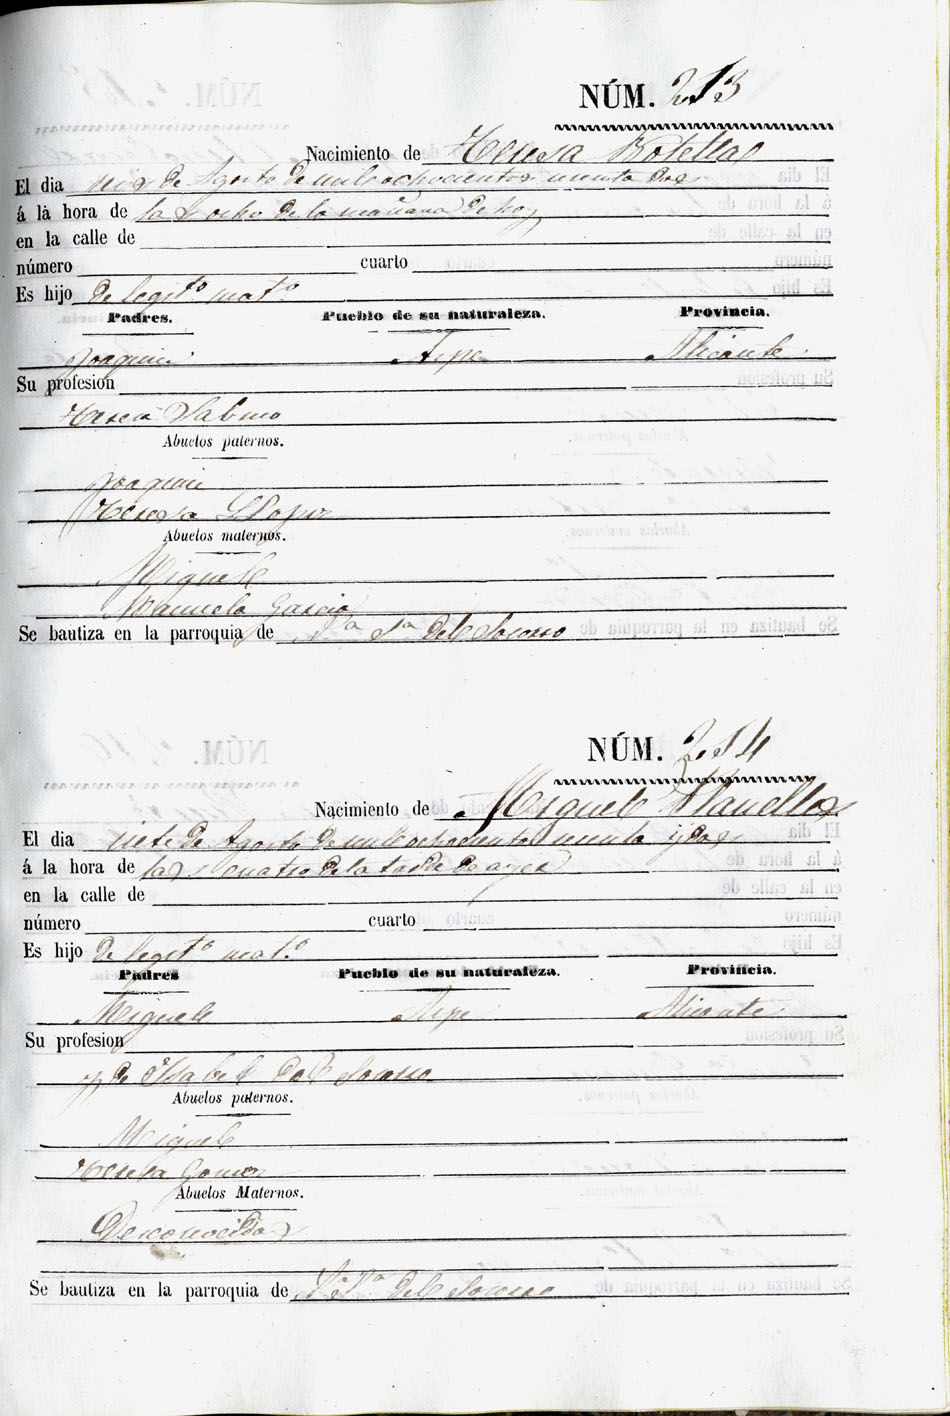 NÚM. 213
Nacimiento de Teresa Botella
El dia seis de Agosto de mil ochocientos sesenta dos
á la hora de las ocho de la mañana de hoy
en la calle de
número cuarto
Es hijo de legit.º mat.º
Padres. Pueblo de su naturaleza. Provincia.
Joaquin Aspe Alicante
Su profesion
Teresa Sabuco
Abuelos paternos.
Joaquin
Teresa Llopiz
Abuelos maternos.
Miguel
Manuela Garcia
Se bautiza en la parroquia de N.ª S.ª del Socorro
NÚM. 214
Nacimiento de Miguel
El dia siete de Agosto de mil ochocientos sesenta y dos
á la hora de las cuatro de la tarde de ayer
en la calle de
número cuarto
Es hijo de legit.º mat.º
Padres Pueblo de su naturaleza. Provincia.
Miguel Aspe Alicante
Su profesion
y de Isabel del Socorro
Abuelos paternos.
Miguel
Teresa Gomez
Abuelos Maternos.
Desconocidos
Se bautiza en la parroquia de N.ª S.ª del Socorro